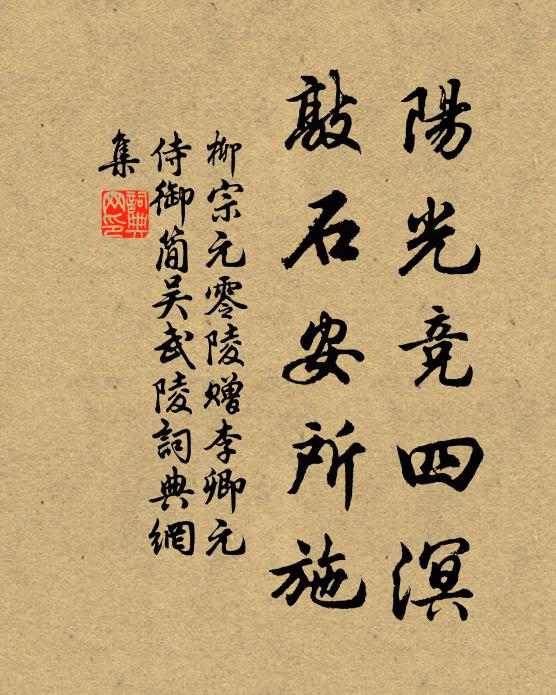 陽光竞四溟
敲石安所施
柳宗元零陵赠李卿元
侍御简吴武陵詞典網
集
詞典
网印